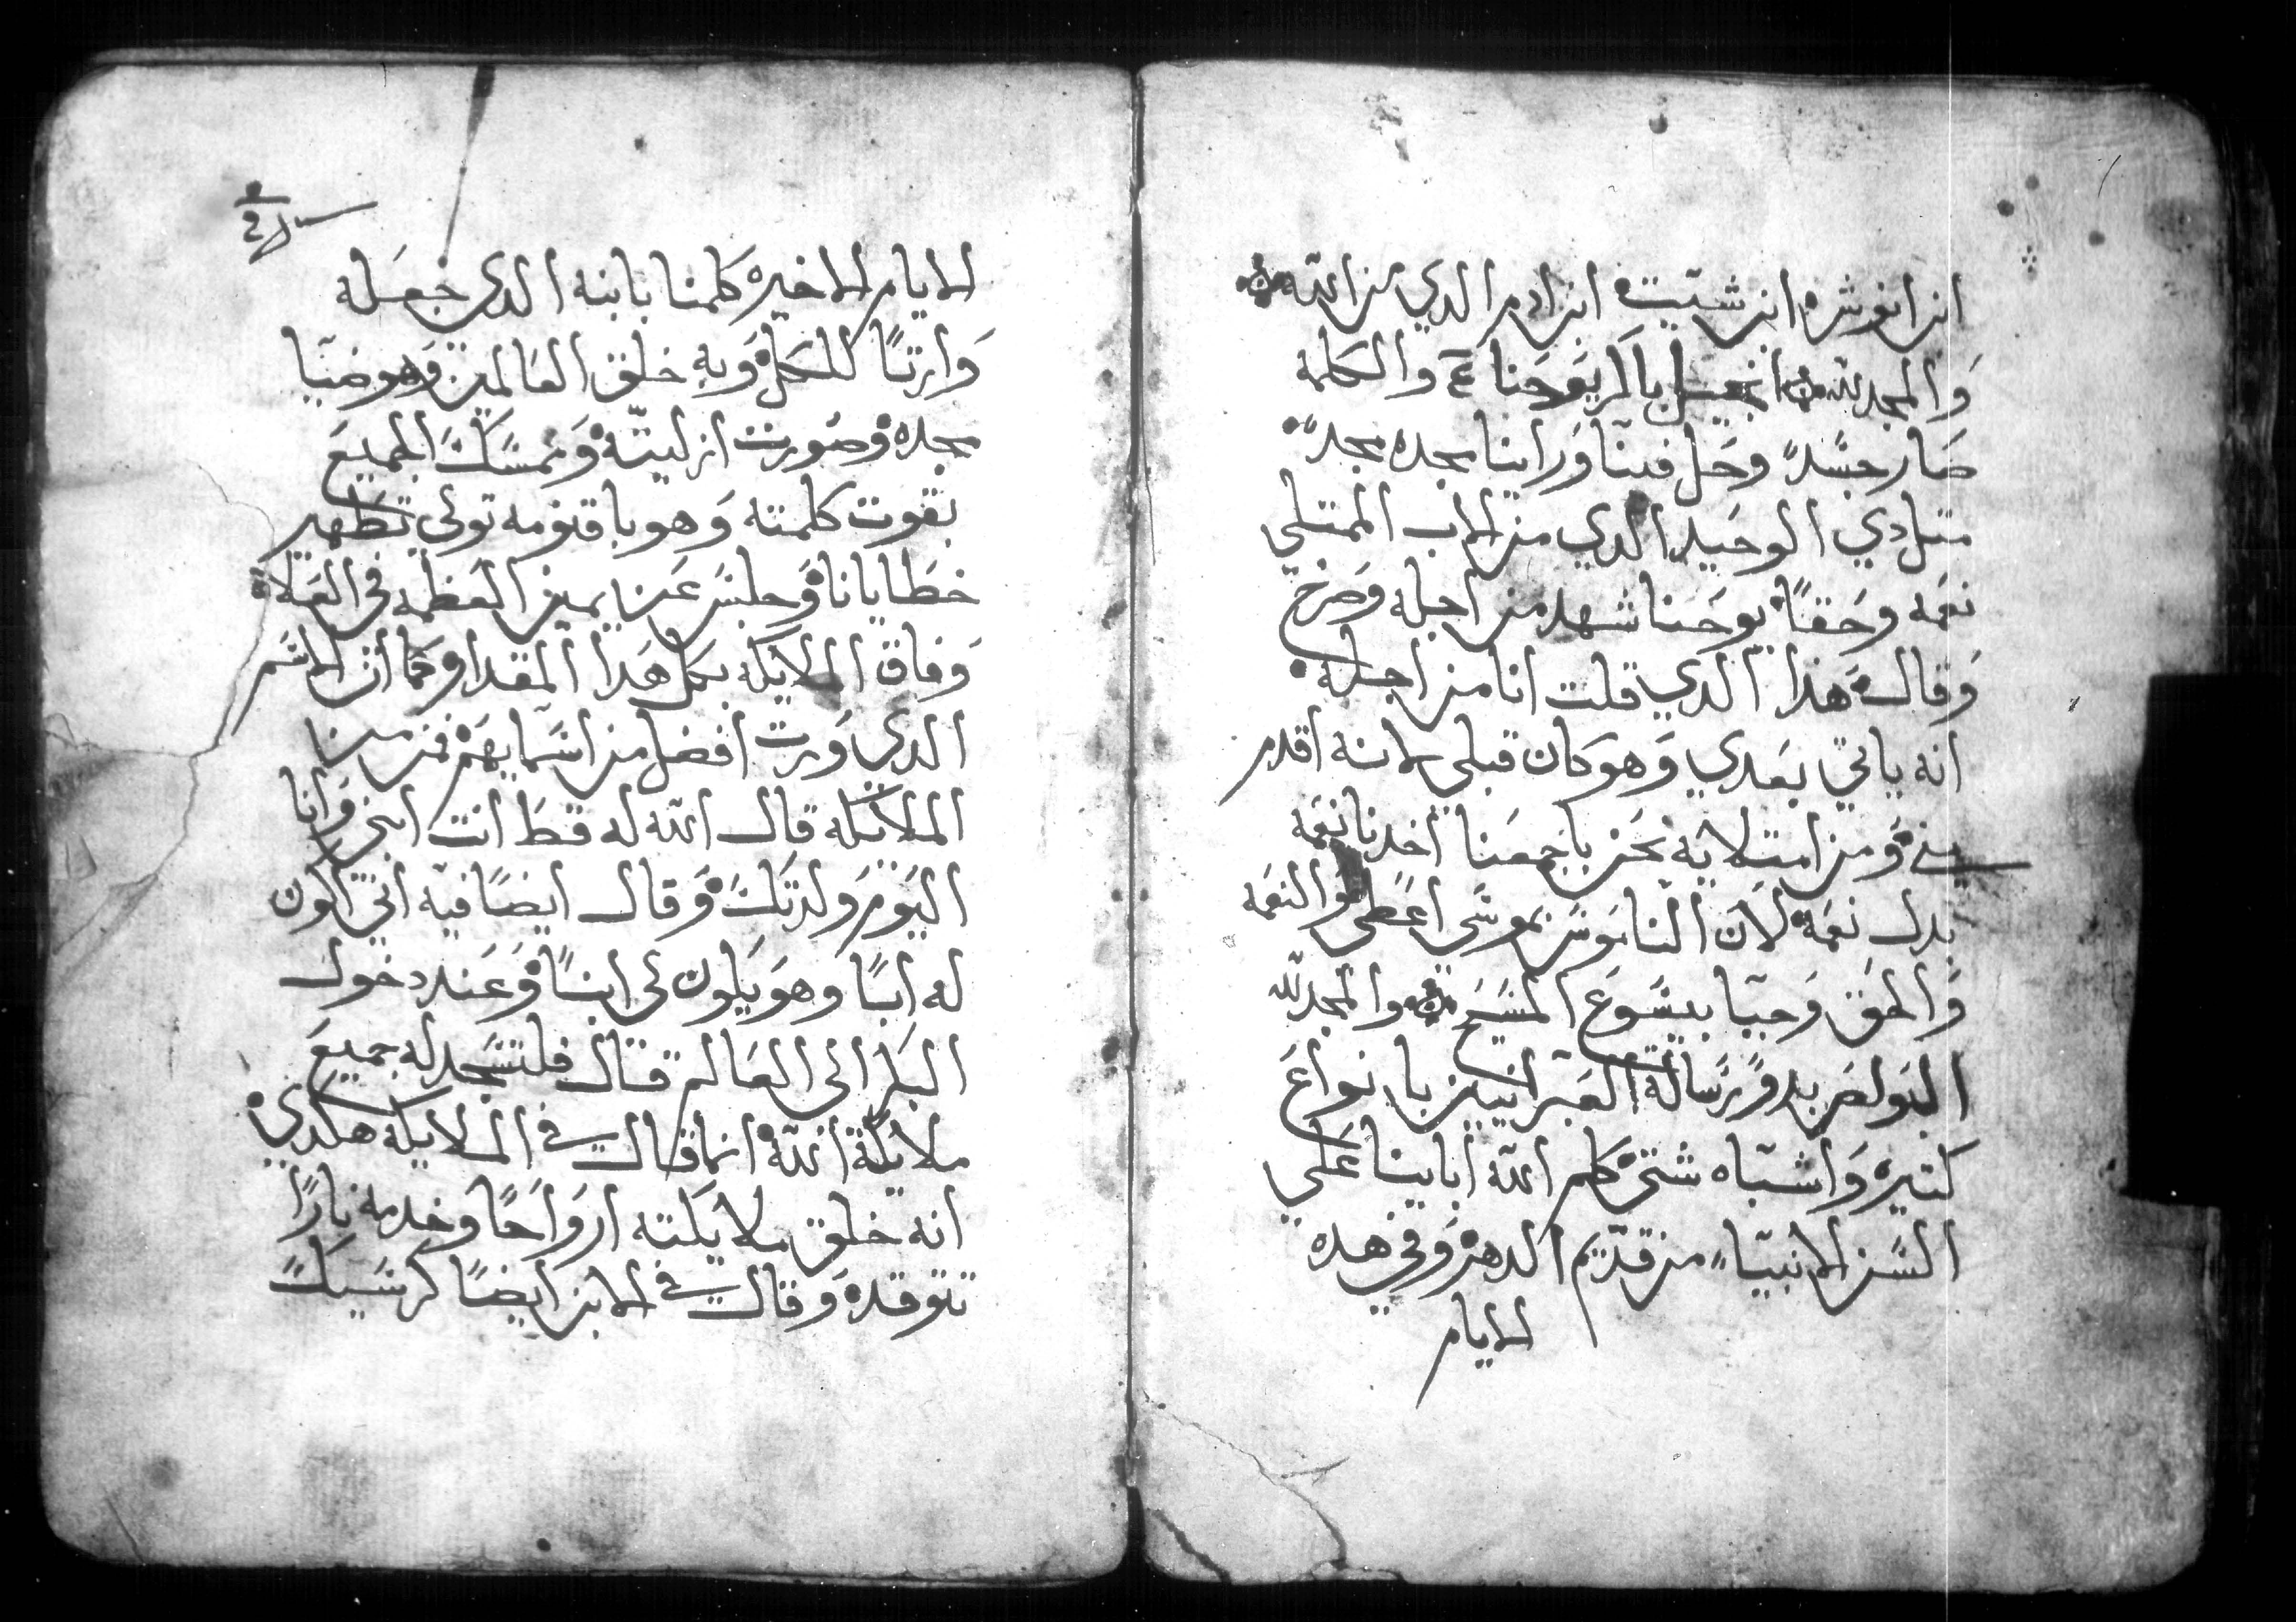 ابن انوش ابن شيت ابن ادم الدي من الله
والمجد لله انجيل باكر يوحنا والكلمة
صار جسداً وحل فينا وراينا مجده مجداً
متل دي الوحيد الدي من الاب الممتلي
نعمه وحقاً يوحنا شهد من اجله وصرخ
وقال هذا الدي قلت انا من اجله
انه ياتي بعدي وهو كان قبلي لانه اقدم
مني ومن امتلايه نحن باجمعنا اخدنا نعمه
بدل نعمة لان الناموس بموسى اعطى والنعمه
والحق وجبا بيسوع المسيح والمجد لله
البولص بدو رسالة العبرانيين بانواع
كتيره واشباه شتى كلم الله اباينا على
السن الانبياء من قديم الدهر وفي هده
الايام
الايام الاخيره كلمنا بابنه الدي جعله
وارتاً للكل وبه خلق العالمين وهو ضيا
مجده وصورت ازليته وتمسك الجميع
بقوت كلمته وهو باقنومه تولى تطهير
خطايانا وجلس عن يمين العظمه في العلا
وفاق الملايكه بكل هدا المقدار كما ان الاسم
الدي ورت افضل من اسمايهم فمن من
الملايكه قال الله له قط انت ابني وانا
اليوم ولدتك وقال ايضاً فيه اني اكون
له اباً وهو يكون لي ابناً وعند دخول
البكر الى العالم قال فلتسجد له جميع
ملايكة الله انما قال في الملايكه هكدي
انه خلق ملايكته ارواحاً وخدمه ناراً
تتوقده وقال في الابن ايضاً كرسيك